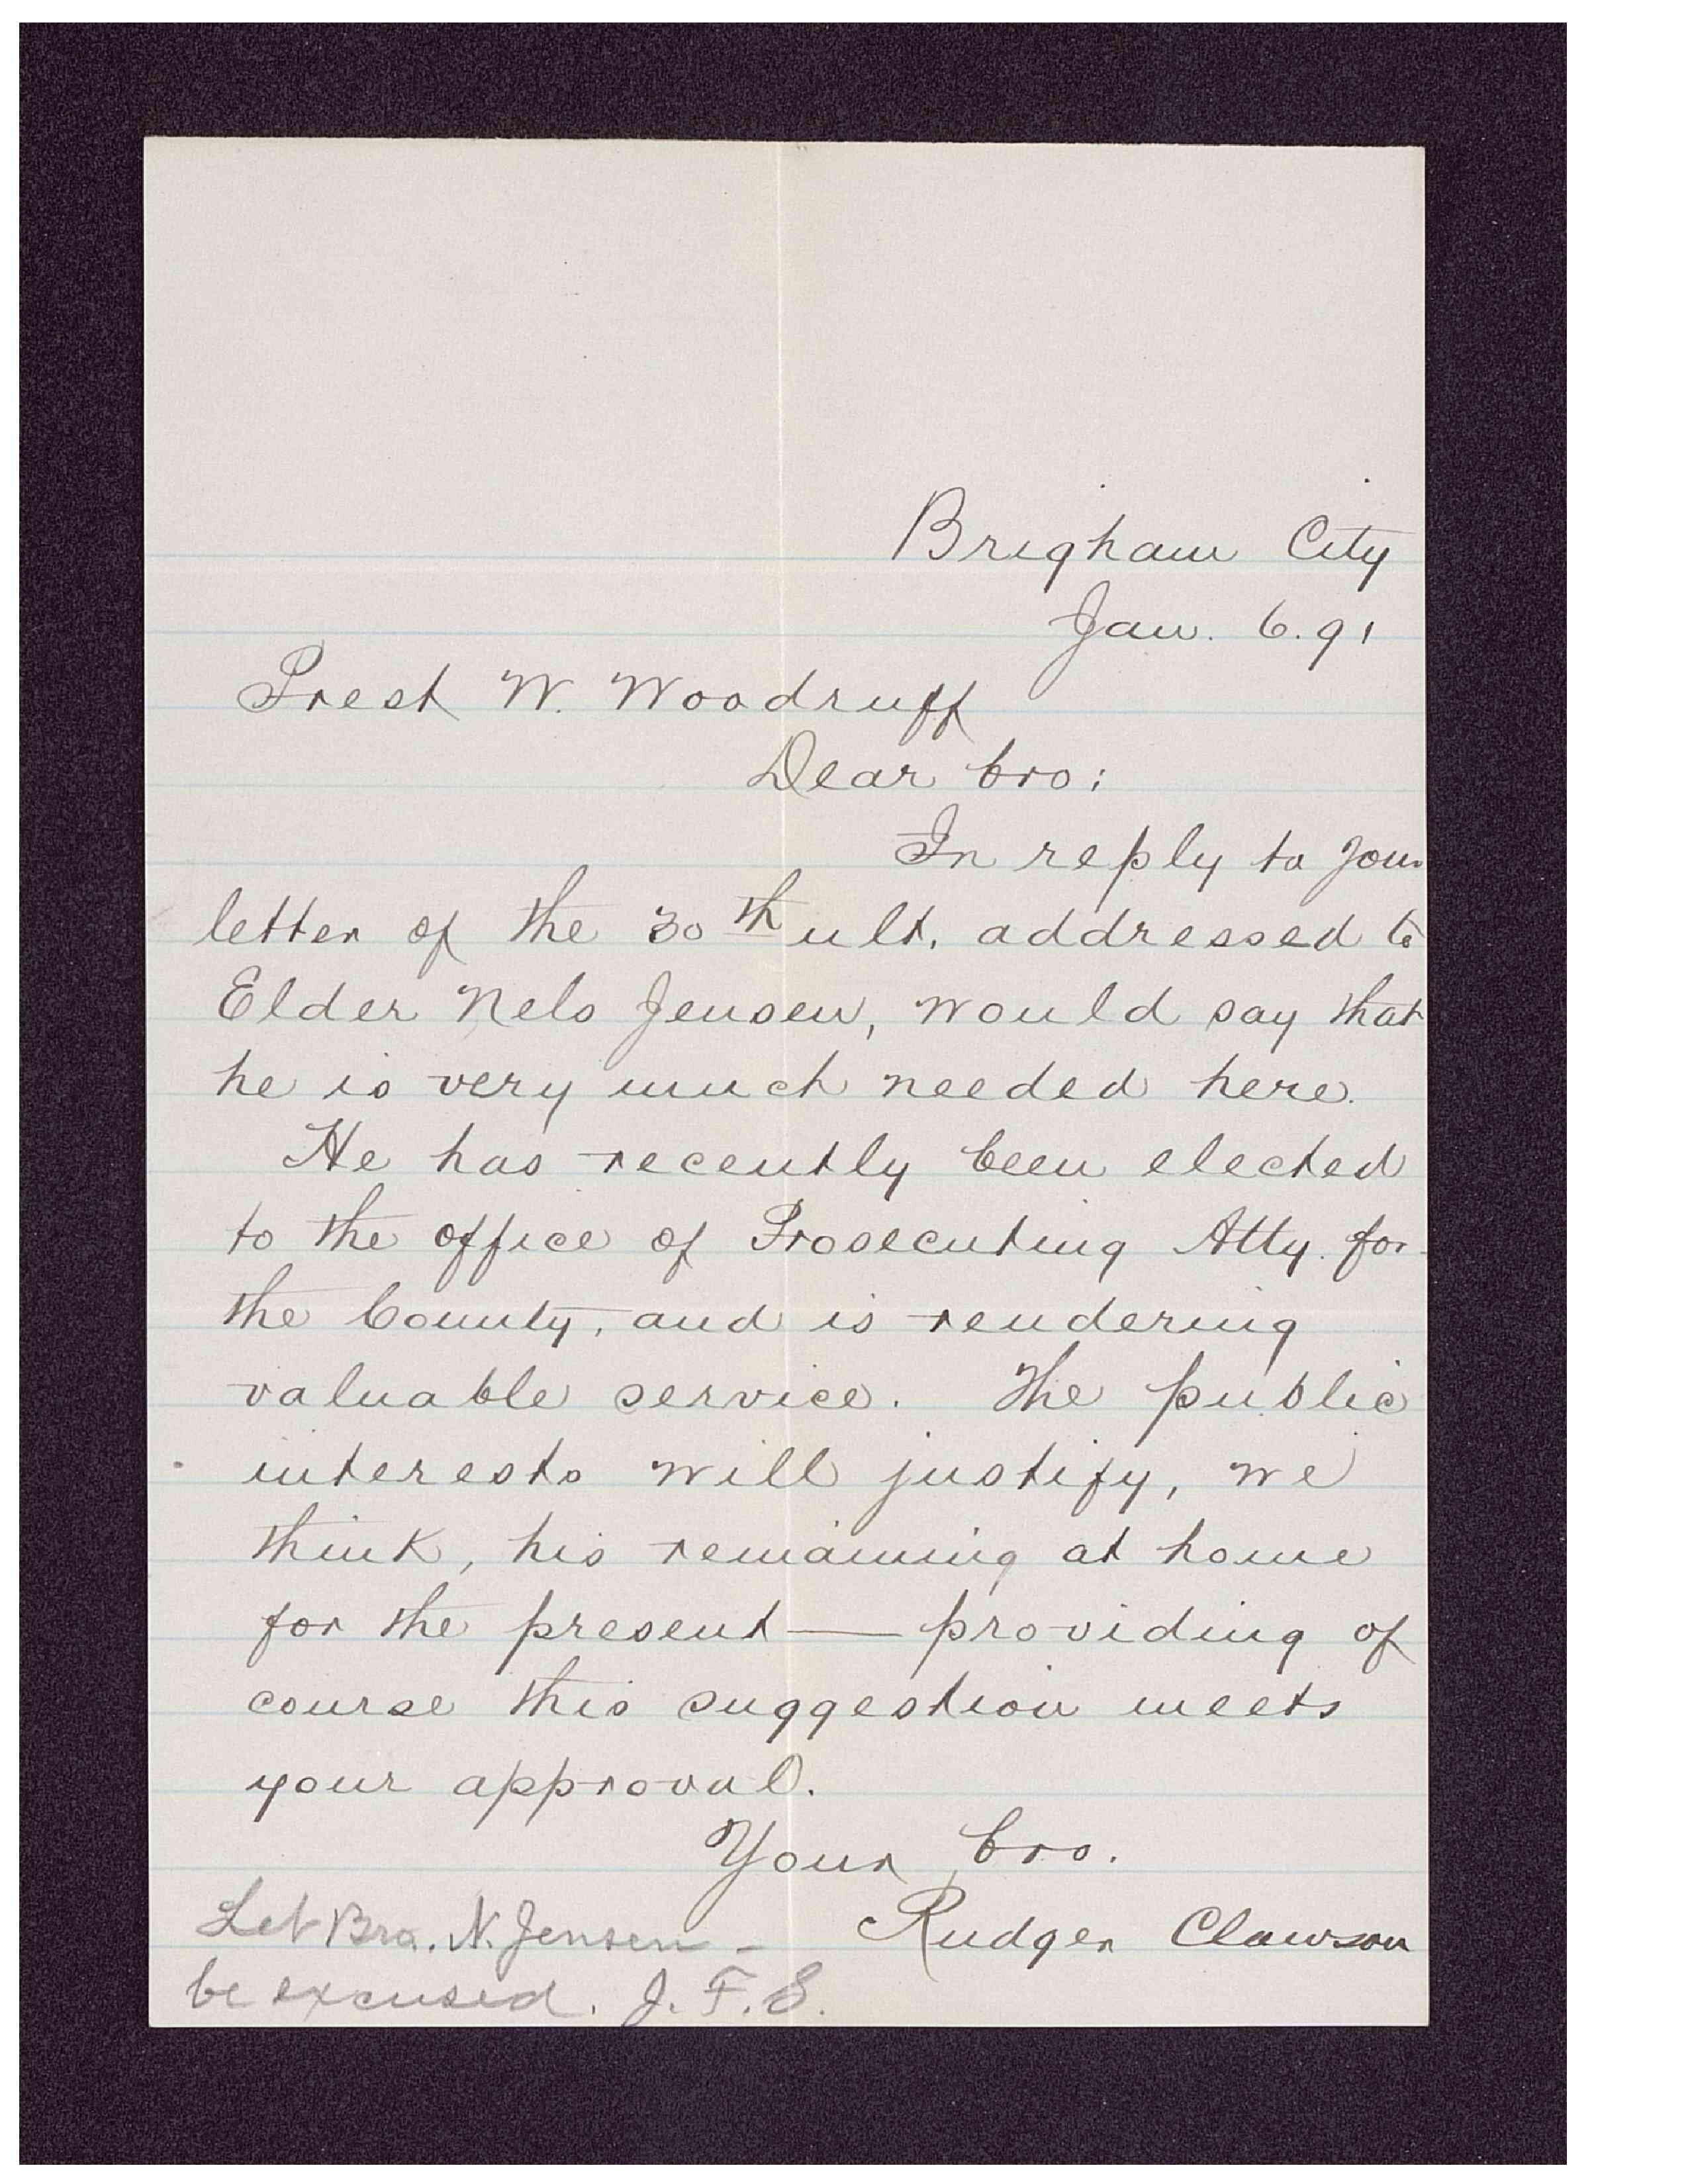 Brigham City
Jan. 6. 91
Prest W. Woodruff
Dear bro:
In reply to your
letter of the 30th ult. addressed to
Elder Nels Jensen, would say that
he is very much needed here.
He has recently been elected
to the office of Prosecuting Atty. for
the County, and is rendering
valuable service. The public
interests will justify, we
think, his remaining at home
for the present — providing of
course this suggestion meets
your approval.
Your bro.
Rudger Clawson
Let Bro. N. Jensen -
be excused. J. F. S.